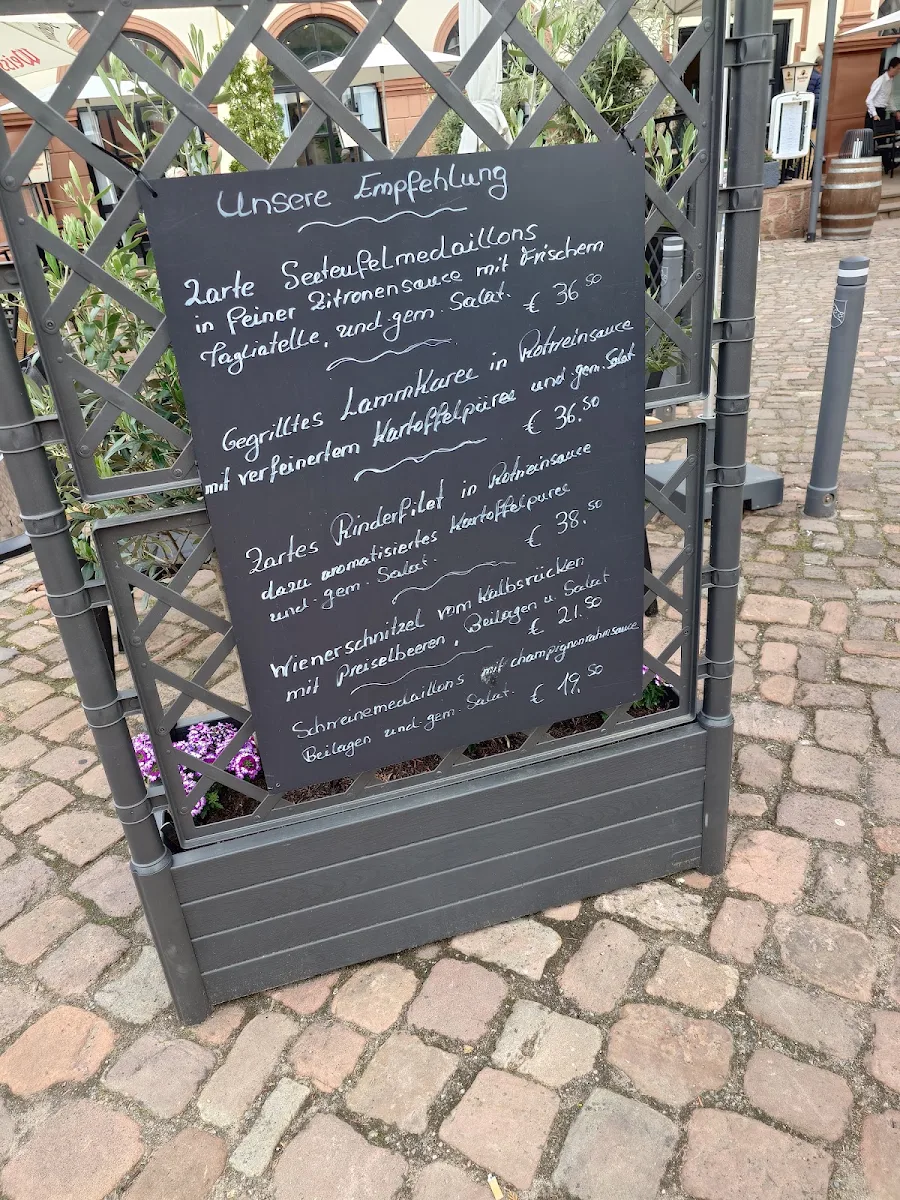 Unsere Empfehlung
Zarte Seeteufelmedaillons
in feiner Zitronensauce mit Frischem
Tagliatelle, und gem. Salat. € 36 50
Gegrilltes Lammkaree in Rotweinsauce
mit verfeinertem Kartoffelpüree und gem. Salat
€ 36.50
Zartes Rinderfilet in Rotweinsauce
dazu aromatisiertes Kartoffelpüree
und gem. Salat. € 38.50
Wienerschnitzel vom Kalbsrücken
mit Preiselbeeren, Beilagen u. Salat
€ 21.50
Schweinemedaillons mit champignonrahmsauce
Beilagen und gem. Salat. € 19.50